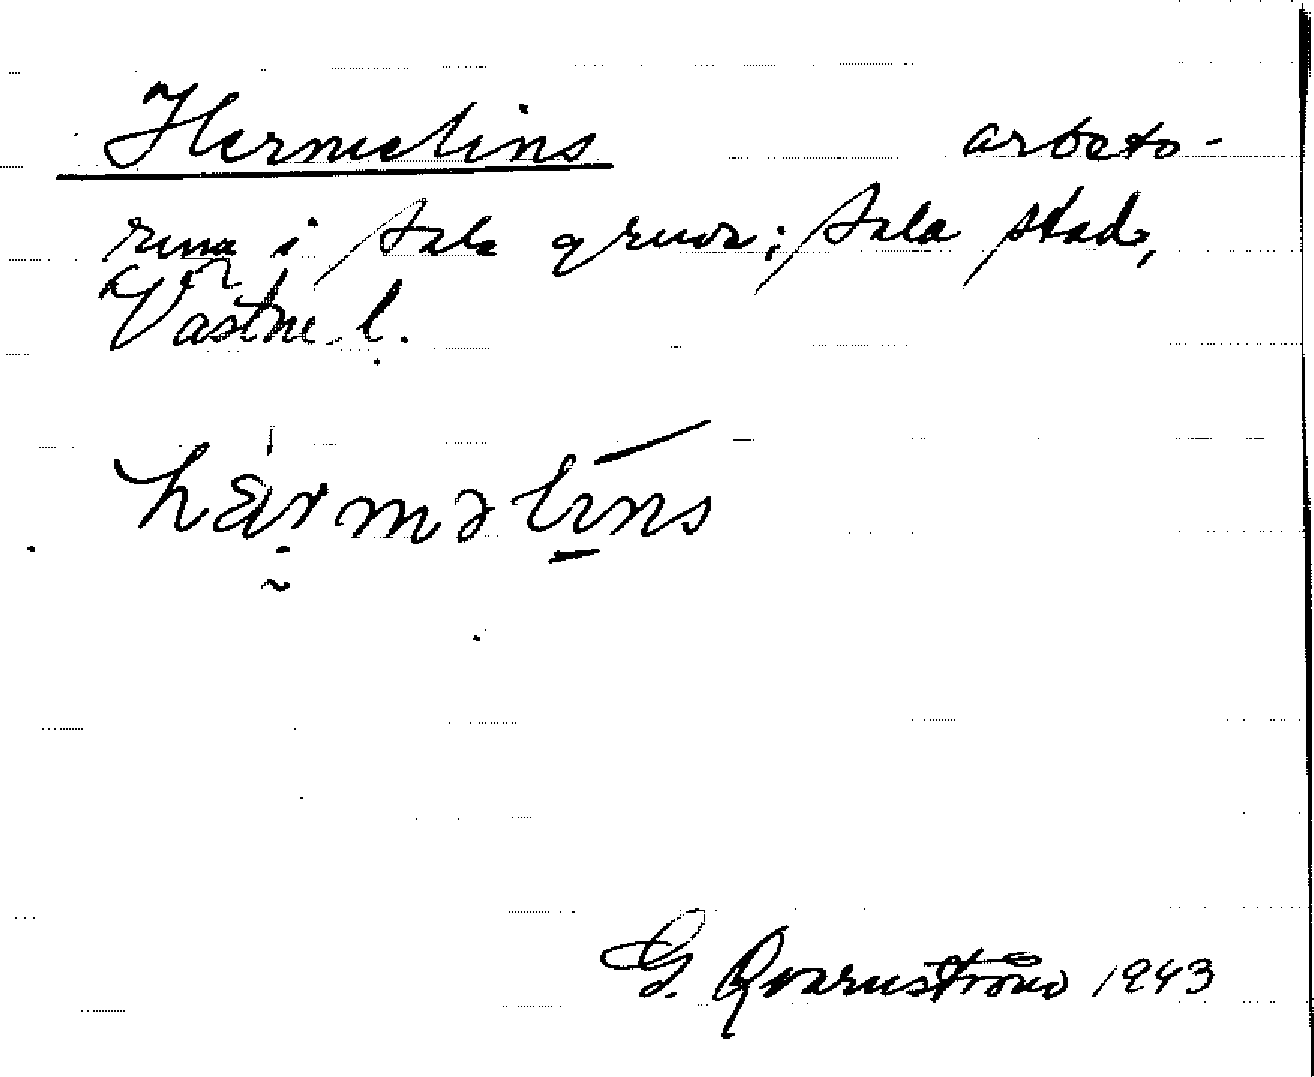 Hermelins arbets-
rum i Sala gruva; Sala stad,
Västm. l.
härməlins
G. Qvarnström 1943